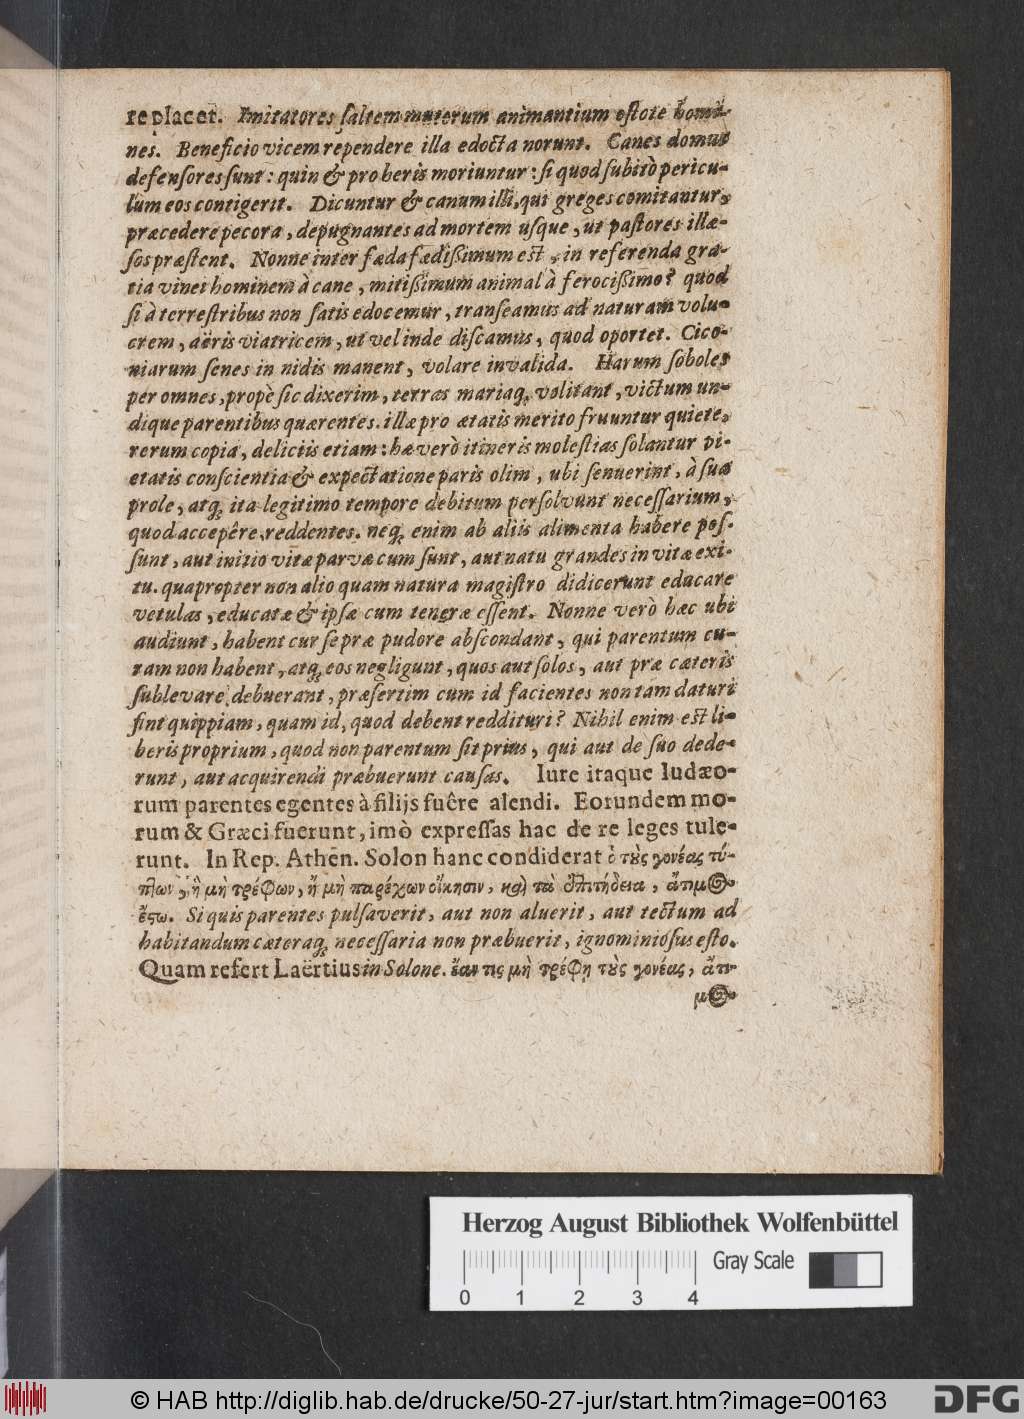 re placet. Imitatores ſaltem mutorum animantium eſtote homi-
nes. Beneficio vicem rependere illa edocta norunt. Canes domus
defenſores ſunt: quin & pro heris moriuntur: ſi quod ſubitò pericu-
lum eos contigerit. Dicuntur & canum illi, qui greges comitantur,
præcedere pecora, depugnantes ad mortem uſque, ut paſtores illæ-
ſos præſtent. Nonne inter fæda fædiſſimum eſt, in referenda gra-
tia vinci hominem à cane, mitiſſimum animal à ferociſſimo? quod
ſi à terreſtribus non ſatis edocemur, tranſeamus ad naturam volu-
crem, aëris viatricem, ut vel inde diſcamus, quod oportet. Cico-
niarum ſenes in nidis manent, volare invalida. Harum ſoboles
per omnes, propè ſic dixerim, terras mariaq́, volitant, victum un-
dique parentibus quærentes. illæ pro ætatis merito fruuntur quiete,
rerum copia, deliciis etiam: hæ verò itineris moleſtias ſolantur pi-
etatis conſcientia & expectatione paris olim, ubi ſenuerint, à ſua
prole, atq́, ita legitimo tempore debitum perſolvunt neceſſarium,
quod accepêre, reddentes. neq́, enim ab aliis alimenta habere poſ-
ſunt, aut initio vitæ parvæ cum ſunt, aut natu grandes in vitæ exi-
tu. quapropter non alio quam natura magiſtro didicerunt educare
vetulas, educatæ & ipſæ cum teneræ eſſent. Nonne verò hæc ubi
audiunt, habent cur ſe præ pudore abſcondant, qui parentum cu-
ram non habent, atq́, eos negligunt, quos aut ſolos, aut præ cæteris
ſublevare debuerant, præſertim cum id facientes non tam daturi
ſint quippiam, quam id, quod debent reddituri? Nihil enim eſt li-
beris proprium, quod non parentum ſit prius, qui aut de ſuo dede-
runt, aut acquirendi præbuerunt cauſas. Iure itaque Iudæo-
rum parentes egentes à filijs fuêre alendi. Eorundem mo-
rum & Græci fuerunt, imò expreſſas hac de re leges tule-
runt. In Rep. Athen. Solon hanc condiderat ὁ τȣ̀ς γονέας τύ-
πτων, ἢ μὴ τρέφων, ἢ μὴ παρέχων οἴκησιν, καὶ τὰ ἐπιτήδεια, ἄτιμος
ἔςω. Si quis parentes pulſaverit, aut non aluerit, aut tectum ad
habitandum cæteraq́, neceſſaria non præbuerit, ignominioſus eſto.
Quam refert Laërtius in Solone. ἐαν τις μὴ τρέφη τȣ̀ς γονέας, ἄτι-
μος
Herzog August Bibliothek Wolfenbüttel
Gray Scale
0 1 2 3 4
© HAB http://diglib.hab.de/drucke/50-27-jur/start.htm?image=00163
DFG